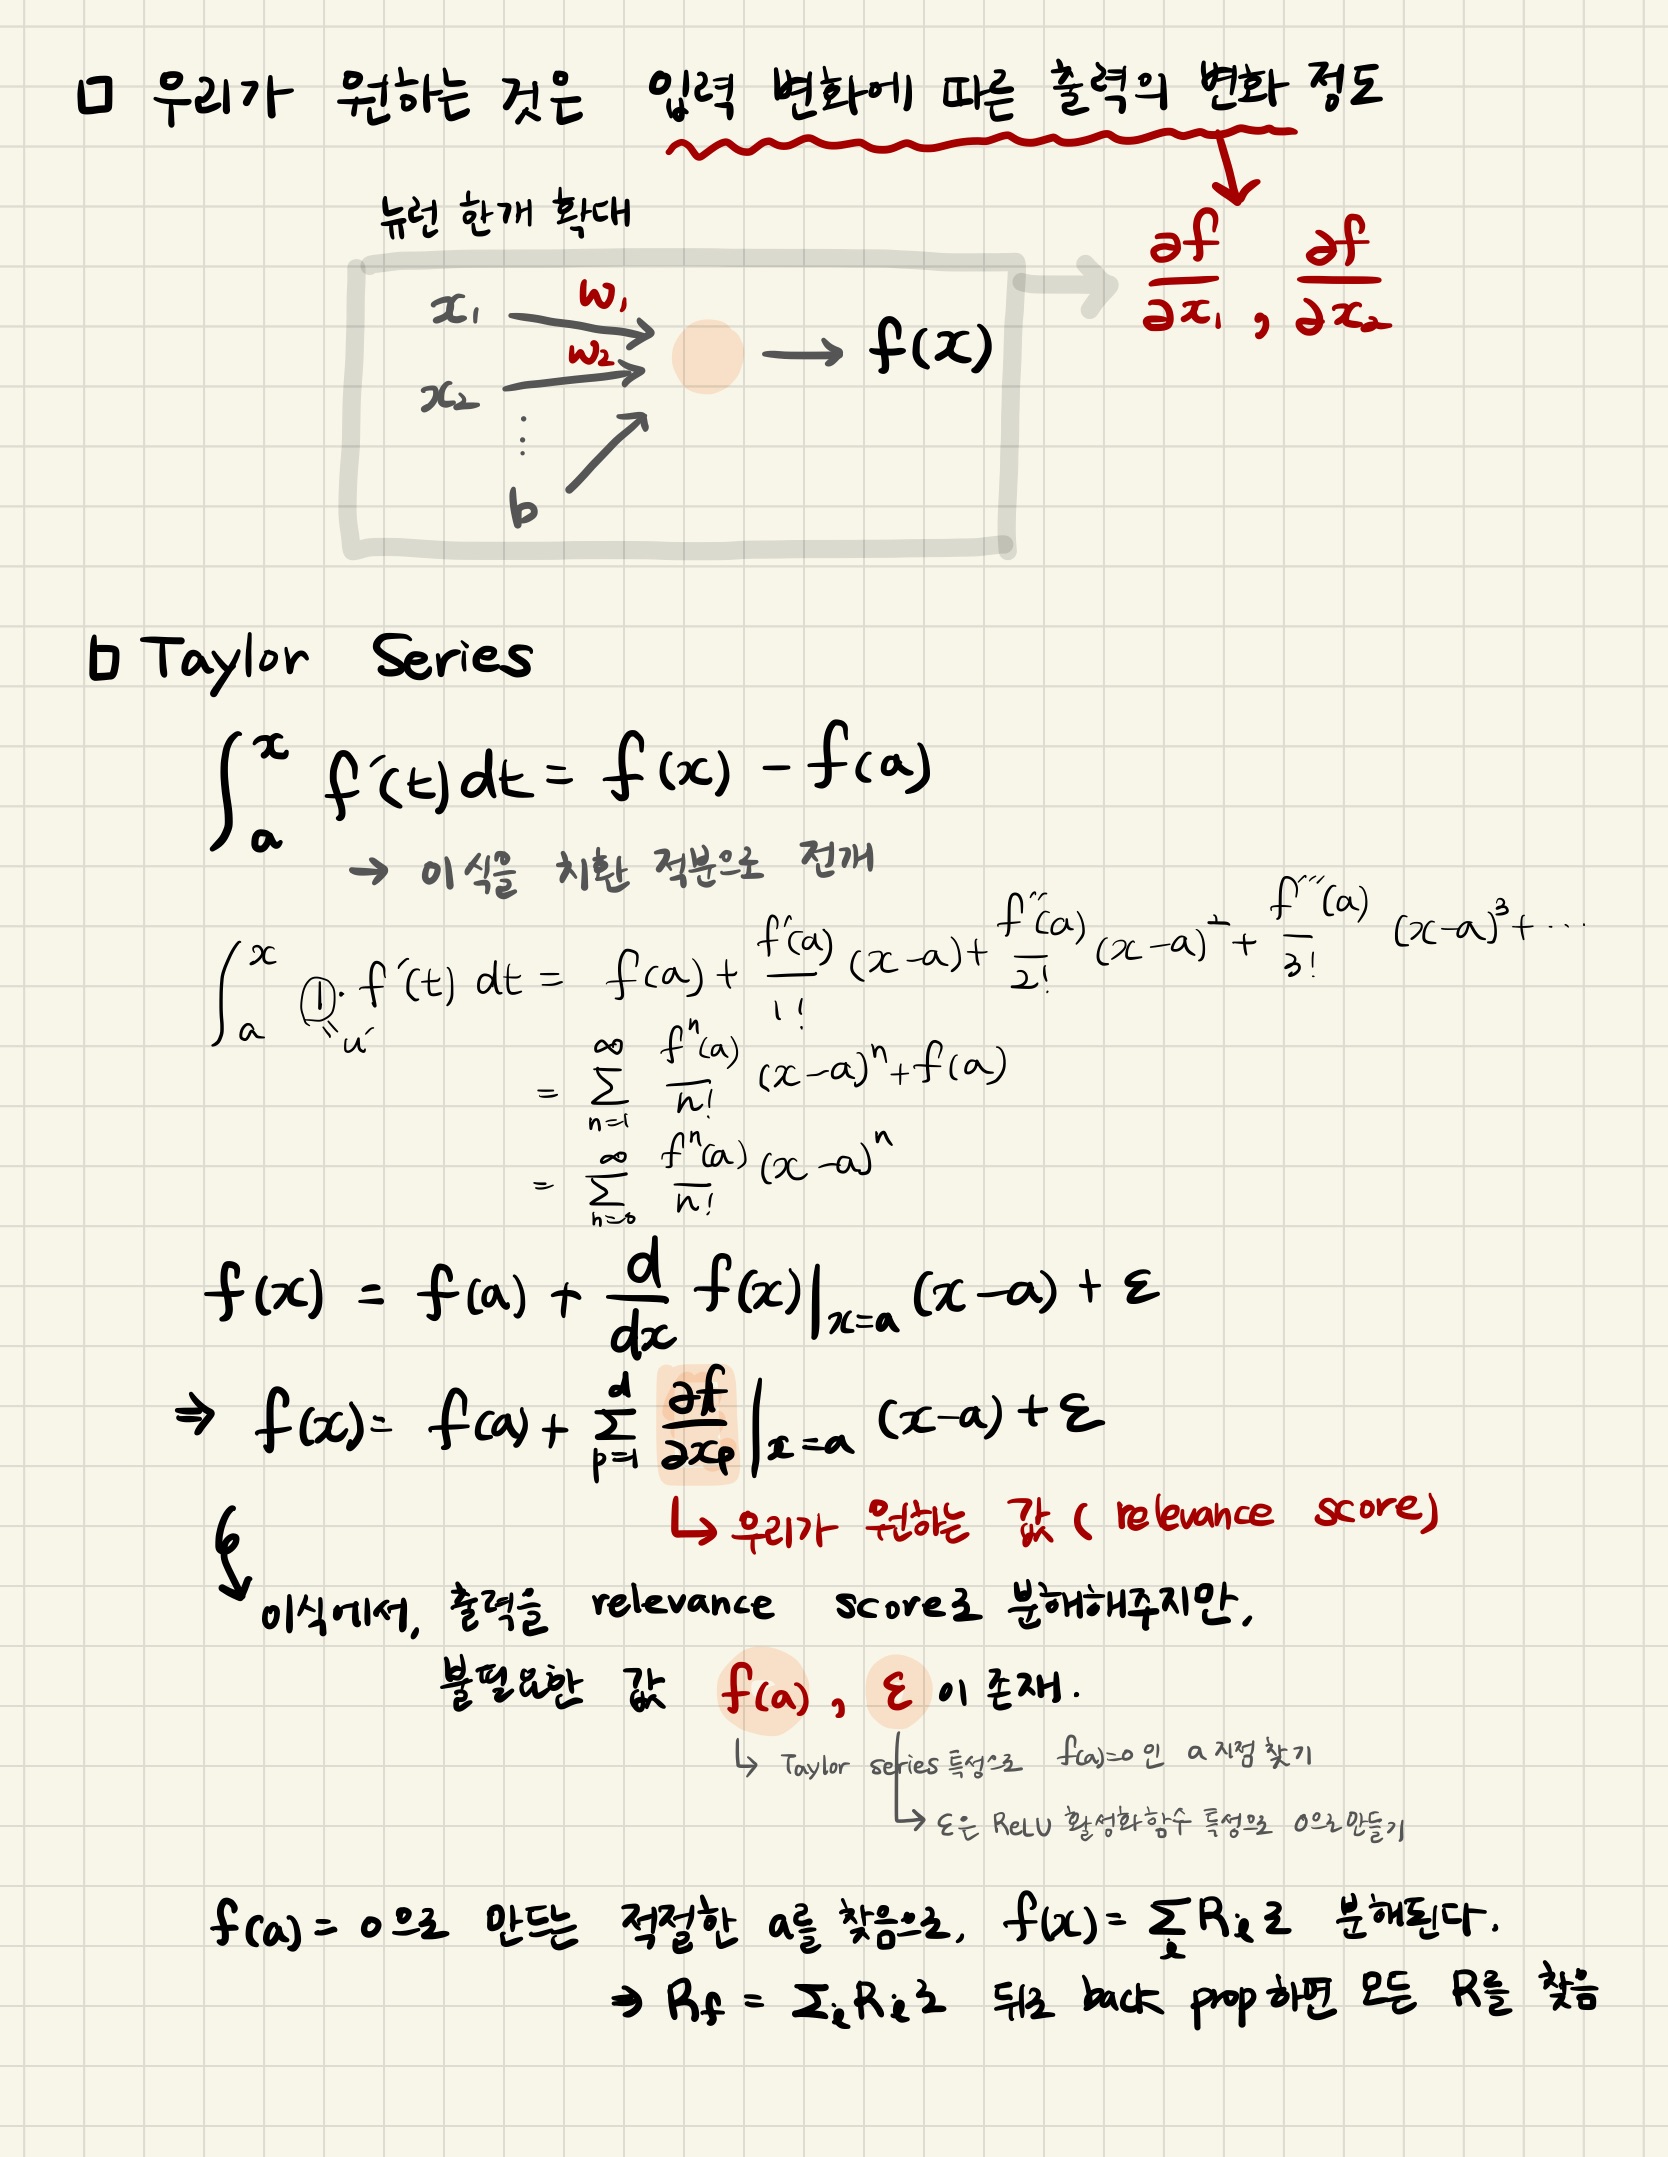 □ 우리가 원하는 것은 입력 변화에 따른 출력의 변화 정도
뉴런 한개 확대
∂f/∂x₁ , ∂f/∂x₂
x₁ w₁
w₂ → f(x)
x₂
⋮
b
□ Taylor Series
∫ₐˣ f′(t)dt = f(x) − f(a)
→ 이식을 치환 적분으로 전개
∫ₐˣ ①· f′(t) dt = f(a) + f′(a)/1! (x−a) + f″(a)/2! (x−a)² + f‴(a)/3! (x−a)³ + ⋯
= u′
= ∑_{n=1}^{∞} fⁿ(a)/n! (x−a)ⁿ + f(a)
= ∑_{n=0}^{∞} fⁿ(a)/n! (x−a)ⁿ
f(x) = f(a) + d/dx f(x)|_{x=a} (x−a) + ε
⇒ f(x) = f(a) + ∑_{p=1}^{d} ∂f/∂xₚ |_{x=a} (x−a) + ε
↳ 우리가 원하는 값 ( relevance score)
이식에서, 출력을 relevance score로 분해해주지만,
불필요한 값 f(a) , ε 이 존재.
↳ Taylor series 특성으로 f(a)=0 인 a 지점 찾기
↳ ε은 ReLU 활성화함수 특성으로 0으로 만들기
f(a) = 0 으로 만드는 적절한 a를 찾음으로, f(x) = ∑ᵢ Rᵢ로 분해된다.
⇒ R_f = ∑ᵢ Rᵢ로 뒤로 back prop 하면 모든 R를 찾음